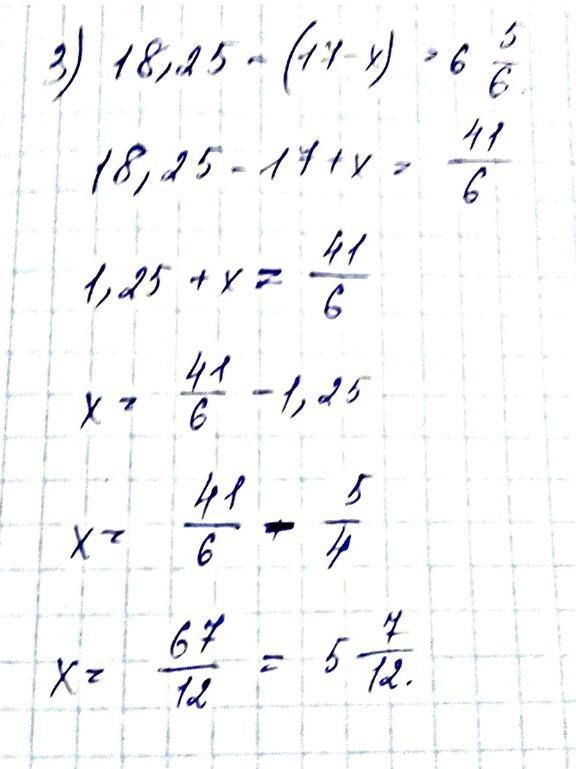 3) 18,25 - (17-x) = 6 5/6.
18,25 - 17 + x = 41/6
1,25 + x = 41/6
x = 41/6 - 1,25
x = 41/6 - 5/4
x = 67/12 = 5 7/12.